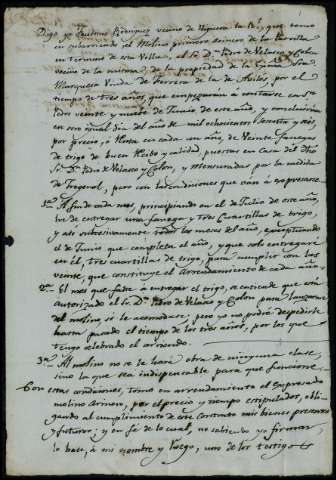 Digo yo Faustino Dominguez vecino de Higuera la Rl, que tomo
en subarriendo el Molino primero arinero de la Parrilla
en termino de esta Villa, al Sr. Dn. Pedro de Velasco y Colon
vecino de la misma, de la propiedad de la Exma. Sra.
Marquesa Viuda de Ferrera de la de Avilés, por el
tiempo de tres años, que empezarán á contarse en Sn.
Pedro veinte y nueve de Junio de este año, y concluirán
en otro igual dia del año de mil ochocientos sesenta y seis,
por precio, ó Renta en cada un año, de Veinte fanegas
de trigo de buen Recibo y calidad, puestas en Casa del Dho
Sr. Dn. Pedro de Velasco y Colon, y mensuradas por la medida
de Fregenal, pero con las condiciones que ván á expresarse
1ª. A fin de cada mes, principiando en el de Julio de este año,
he de entregar una fanega y tres Cuartillas de trigo,
y asi sucesivamente todos los meses del año, exceptuando
el de Junio que completa el año, y que solo entregaré
en él, tres cuartillas de trigo, para cumplir con las
veinte, que constituye el Arrendamiento de cada año.
2ª. El mes que falte á entregar el trigo, se entiende que está
autorizado el Sr. Dn. Pedro de Velasco y Colon para lanzarme
del molino si le acomodase; pero yo no podré despedirle
hasta pasado el tiempo de los tres años, por los que
tengo celebrado el arriendo.
3ª. Al molino no se le hará obra de ninguna clase,
sino la que sea indispensable para que funcione.
Con estas condiciones, tomo en arrendamiento el Expresado
molino Arinero, por el precio y tiempo estipulados, obli-
gando al cumplimiento de este Contrato mis bienes presentes
y futuros; y en fe de lo cual, no sabiendo yo firmar,
lo hace, á mi nombre y Ruego, uno de los testigos